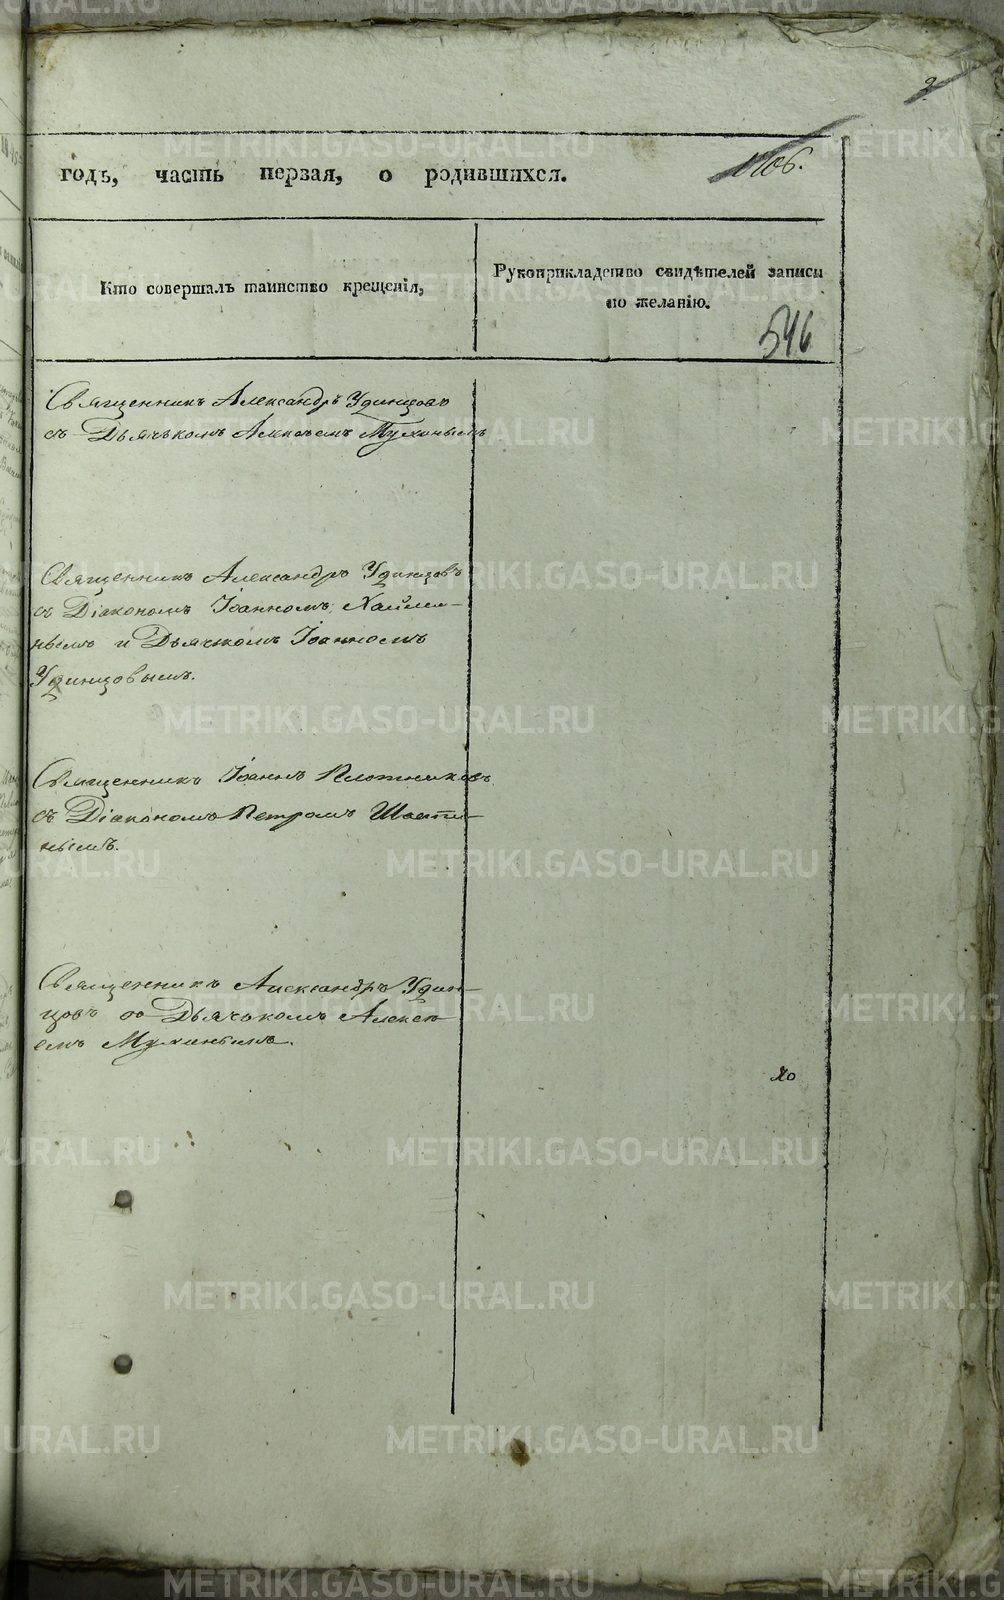 2
годъ, часть первая, о родившихся.
1106.
Кто совершалъ таинство крещенія,
Рукоприкладство свидѣтелей записи
по желанію.
546
Священникъ Александръ Удинцовъ
съ Дьячькомъ Алексѣемъ Мухинымъ
Священникъ Александръ Удинцовъ
съ Діакономъ Іоанномъ
нымъ и Дьячкомъ Іоанномъ
Удинцовымъ.
Священникъ Іоаннъ Плотниковъ
съ Діакономъ Петромъ Шасти-
нымъ.
Священникъ Александръ Удин-
цовъ со Дьячькомъ Алексѣ
емъ Мухинымъ.
METRIKI.GASO-URAL.RU